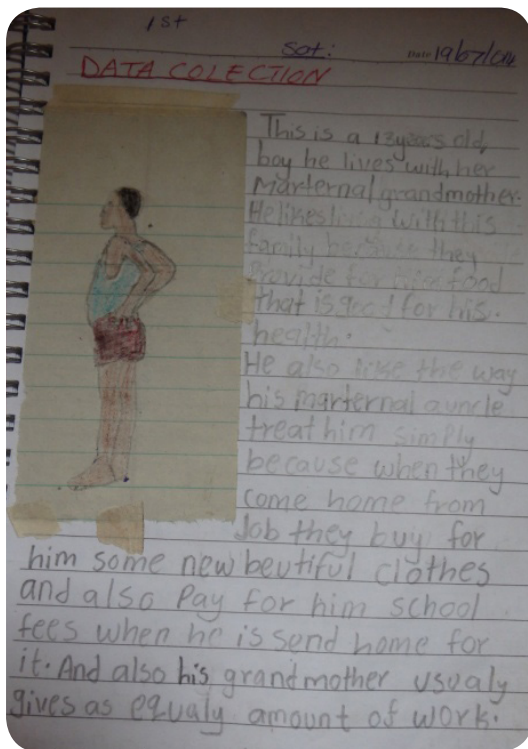 1st
Sat: Date 19/07/014
DATA COLECTION
This is a 13years old,
boy he lives with her
Marternal grandmother.
He likes living with this
family because they
Provide for him food
that is good for his.
health.
He also like the way
his marternal auncle
treat him simply
because when they
come home from
Job they buy for
him some new beutiful clothes
and also Pay for him school
fees when he is send home for
it. And also his grandmother usualy
gives as equaly amount of work.